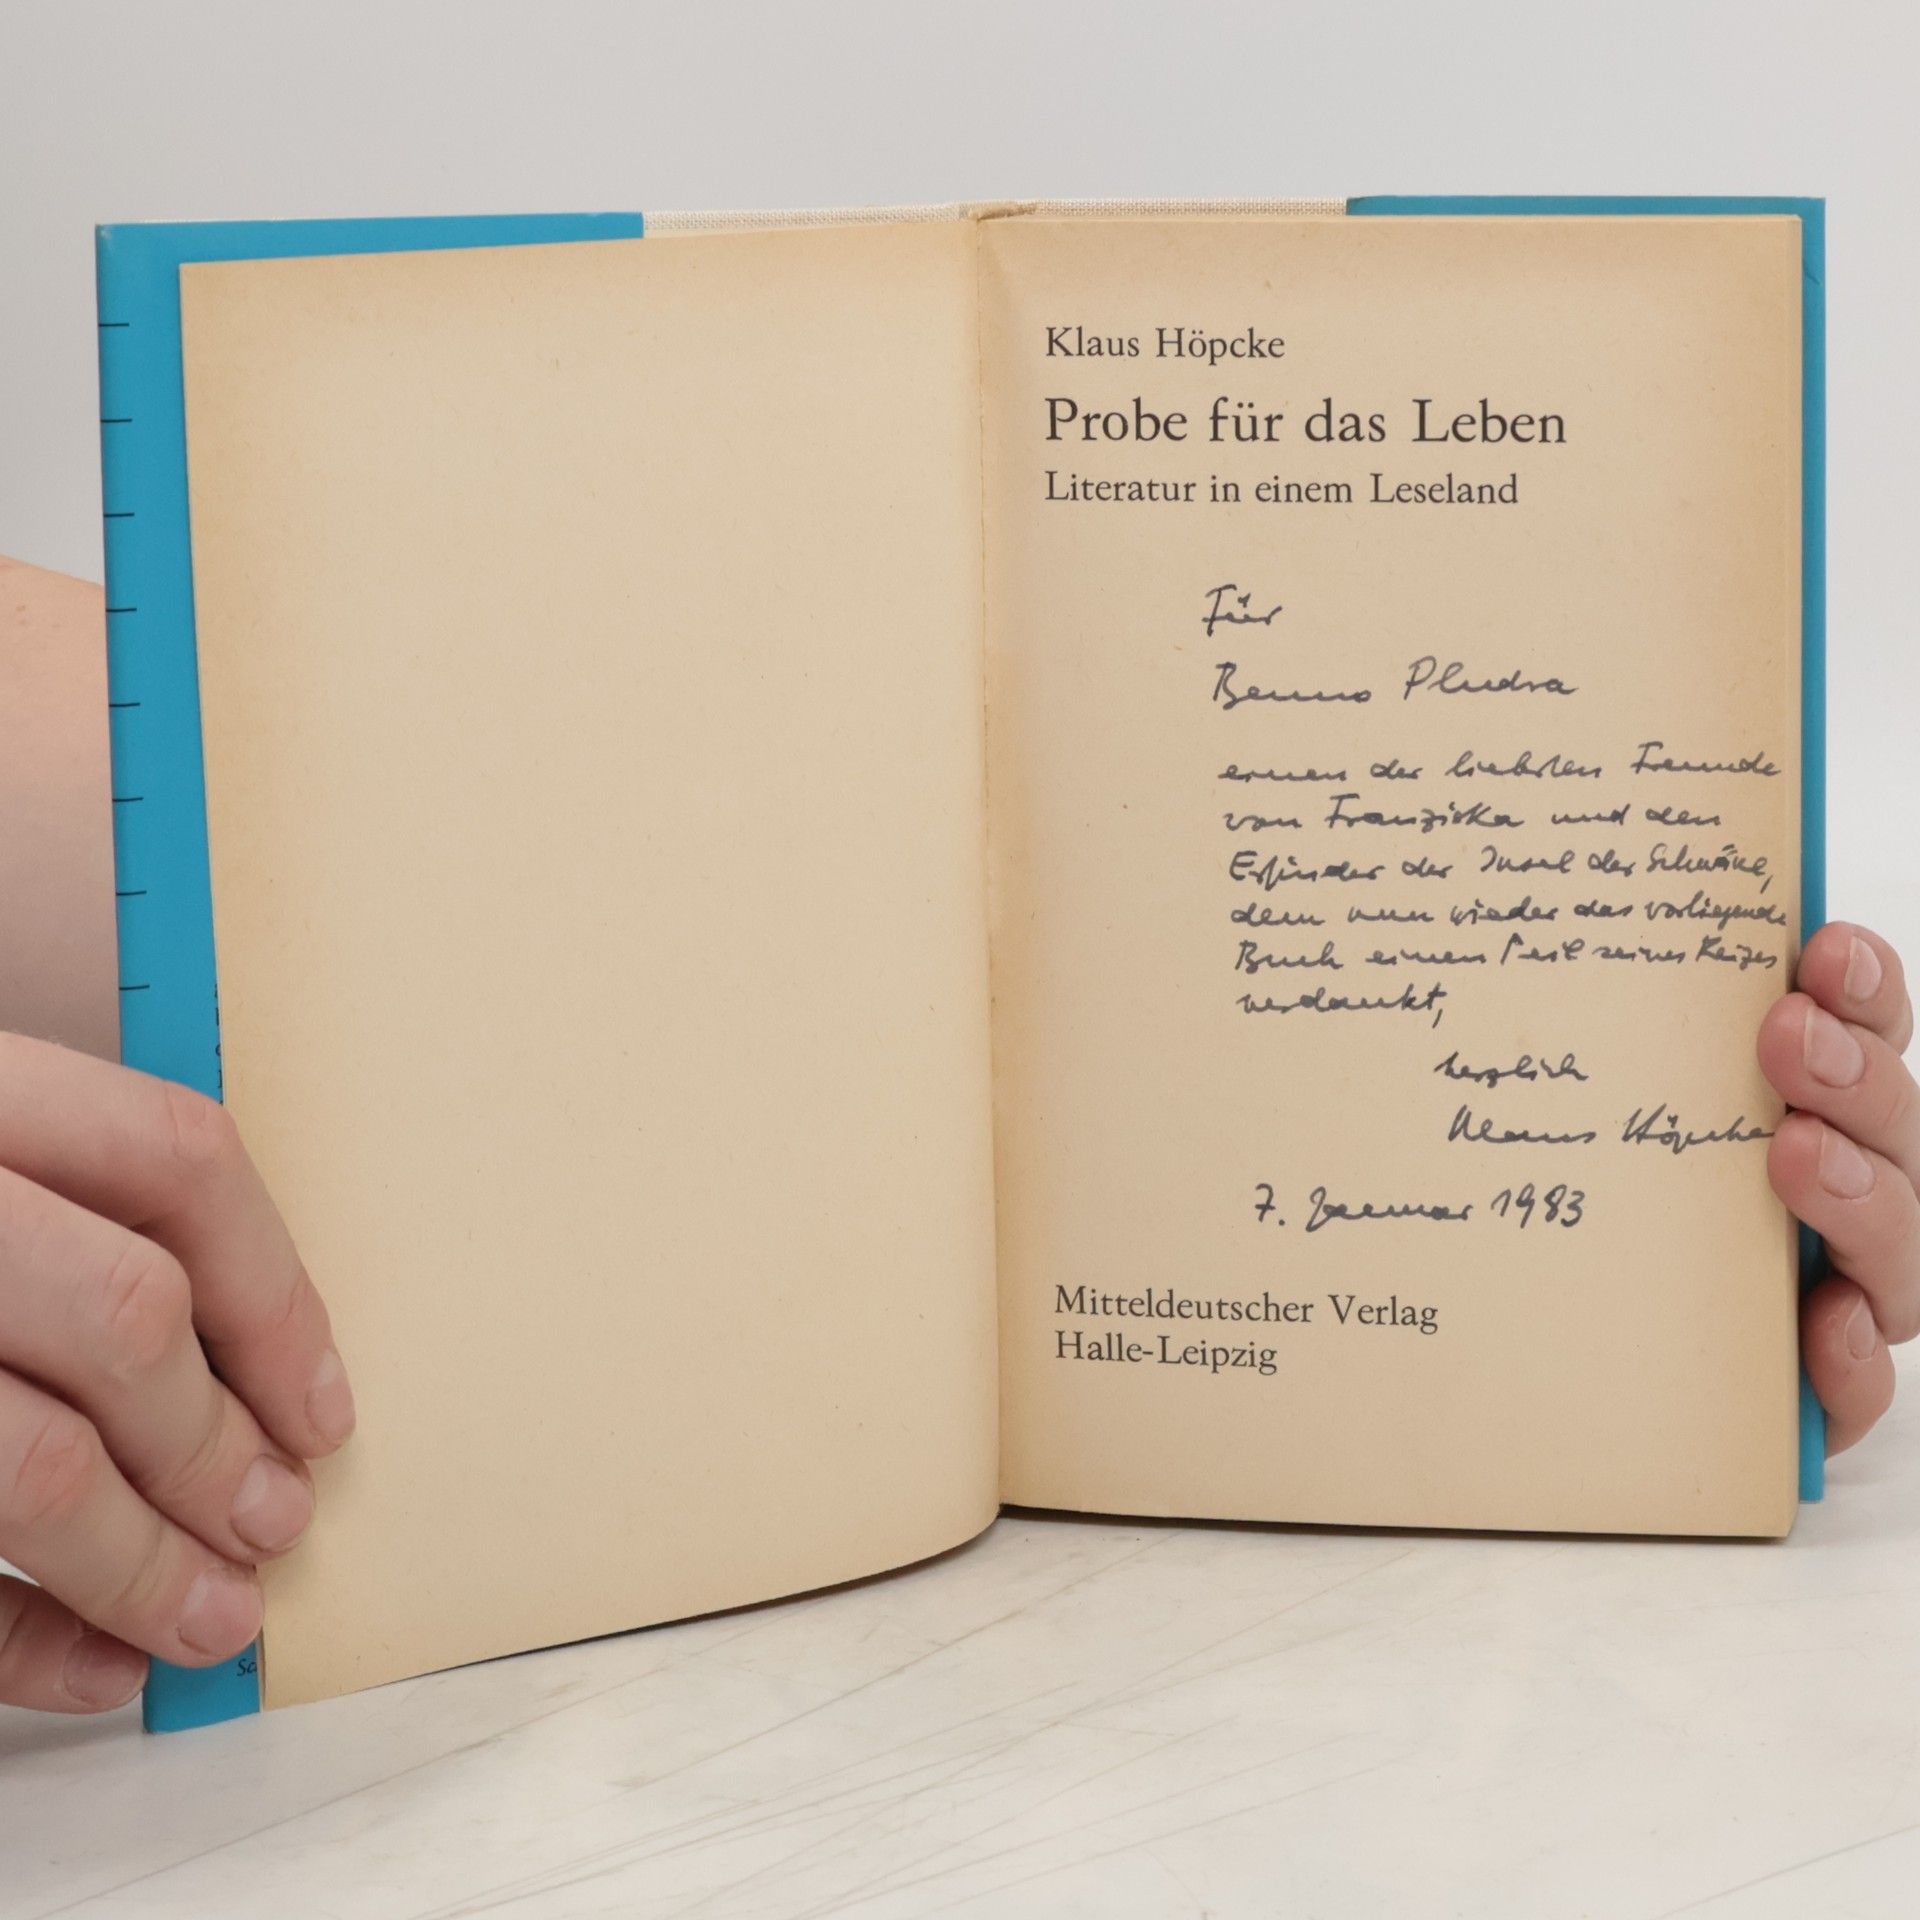 Klaus Höpcke
Probe für das Leben
Literatur in einem Leseland
Für
Benno Pludra
einen der liebsten Freunde
von Franziska und den
Erfinder der Insel der Schwäne,
dem nun wieder das vorliegende
Buch einen Teil seines Reizes
verdankt,
herzlich
Klaus Höpcke
7. Januar 1983
Mitteldeutscher Verlag
Halle-Leipzig